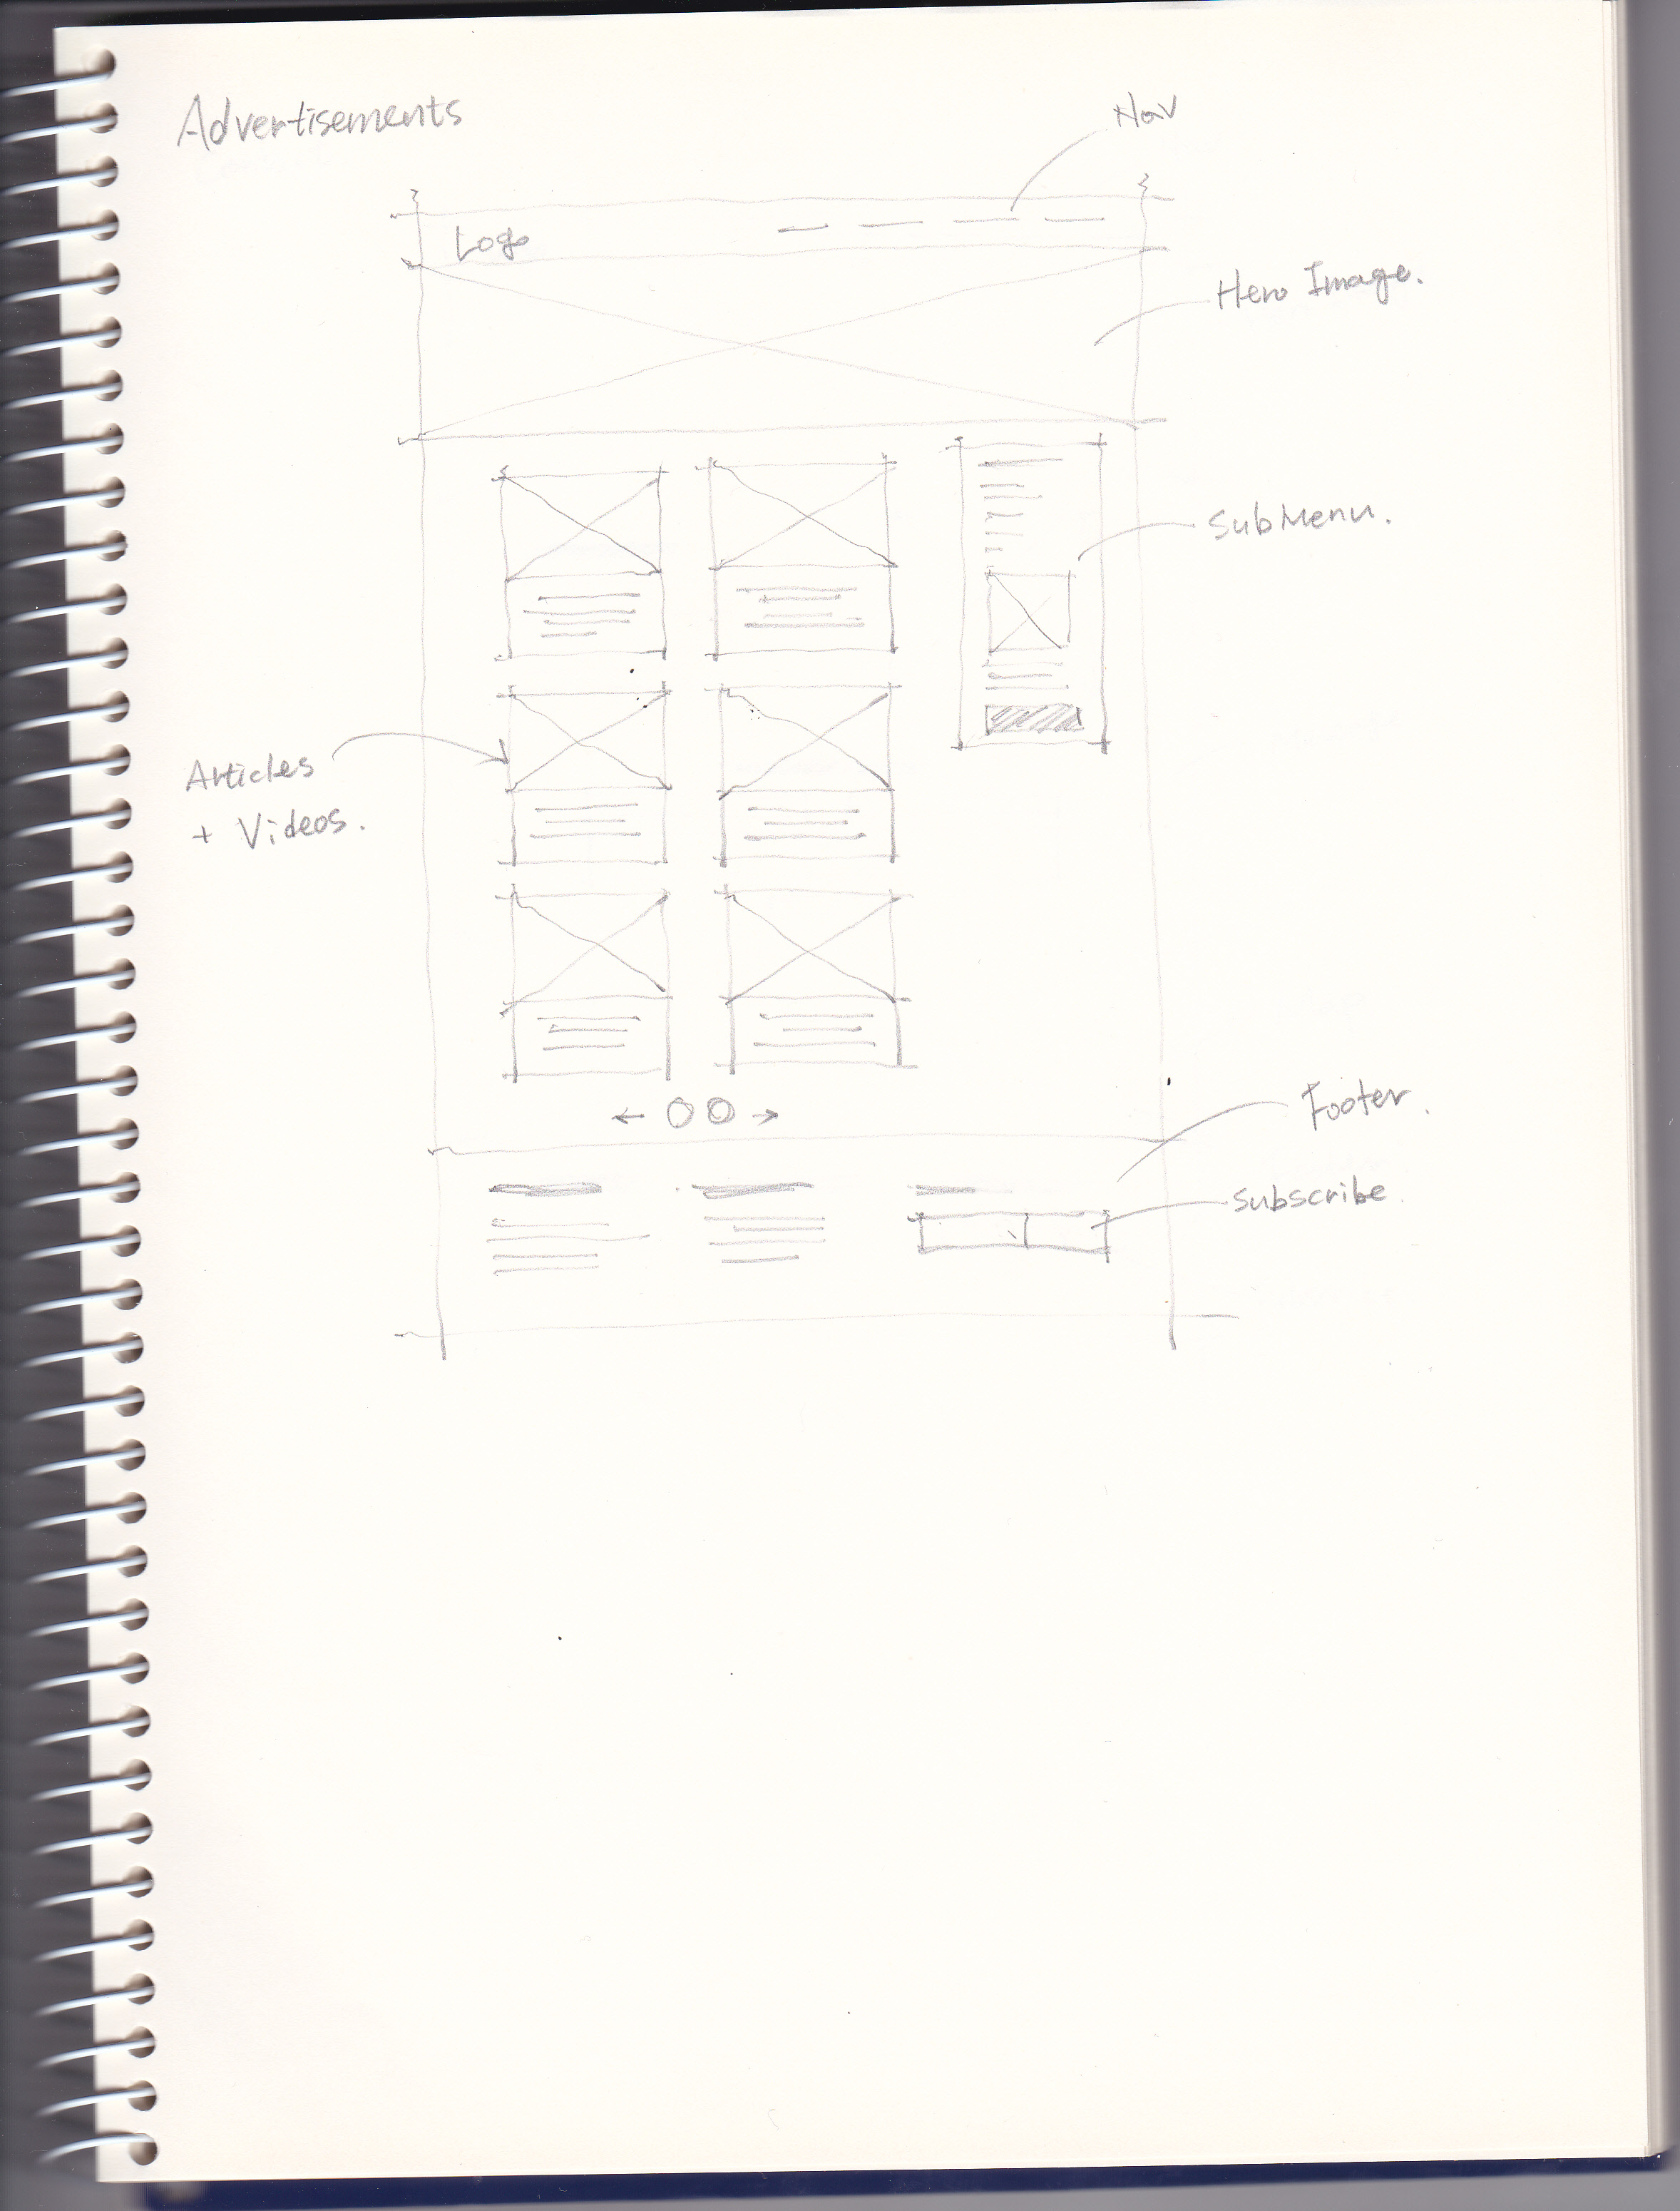 Advertisements
Nav
Logo
Hero Image.
SubMenu.
Articles
+ Videos.
Footer.
Subscribe